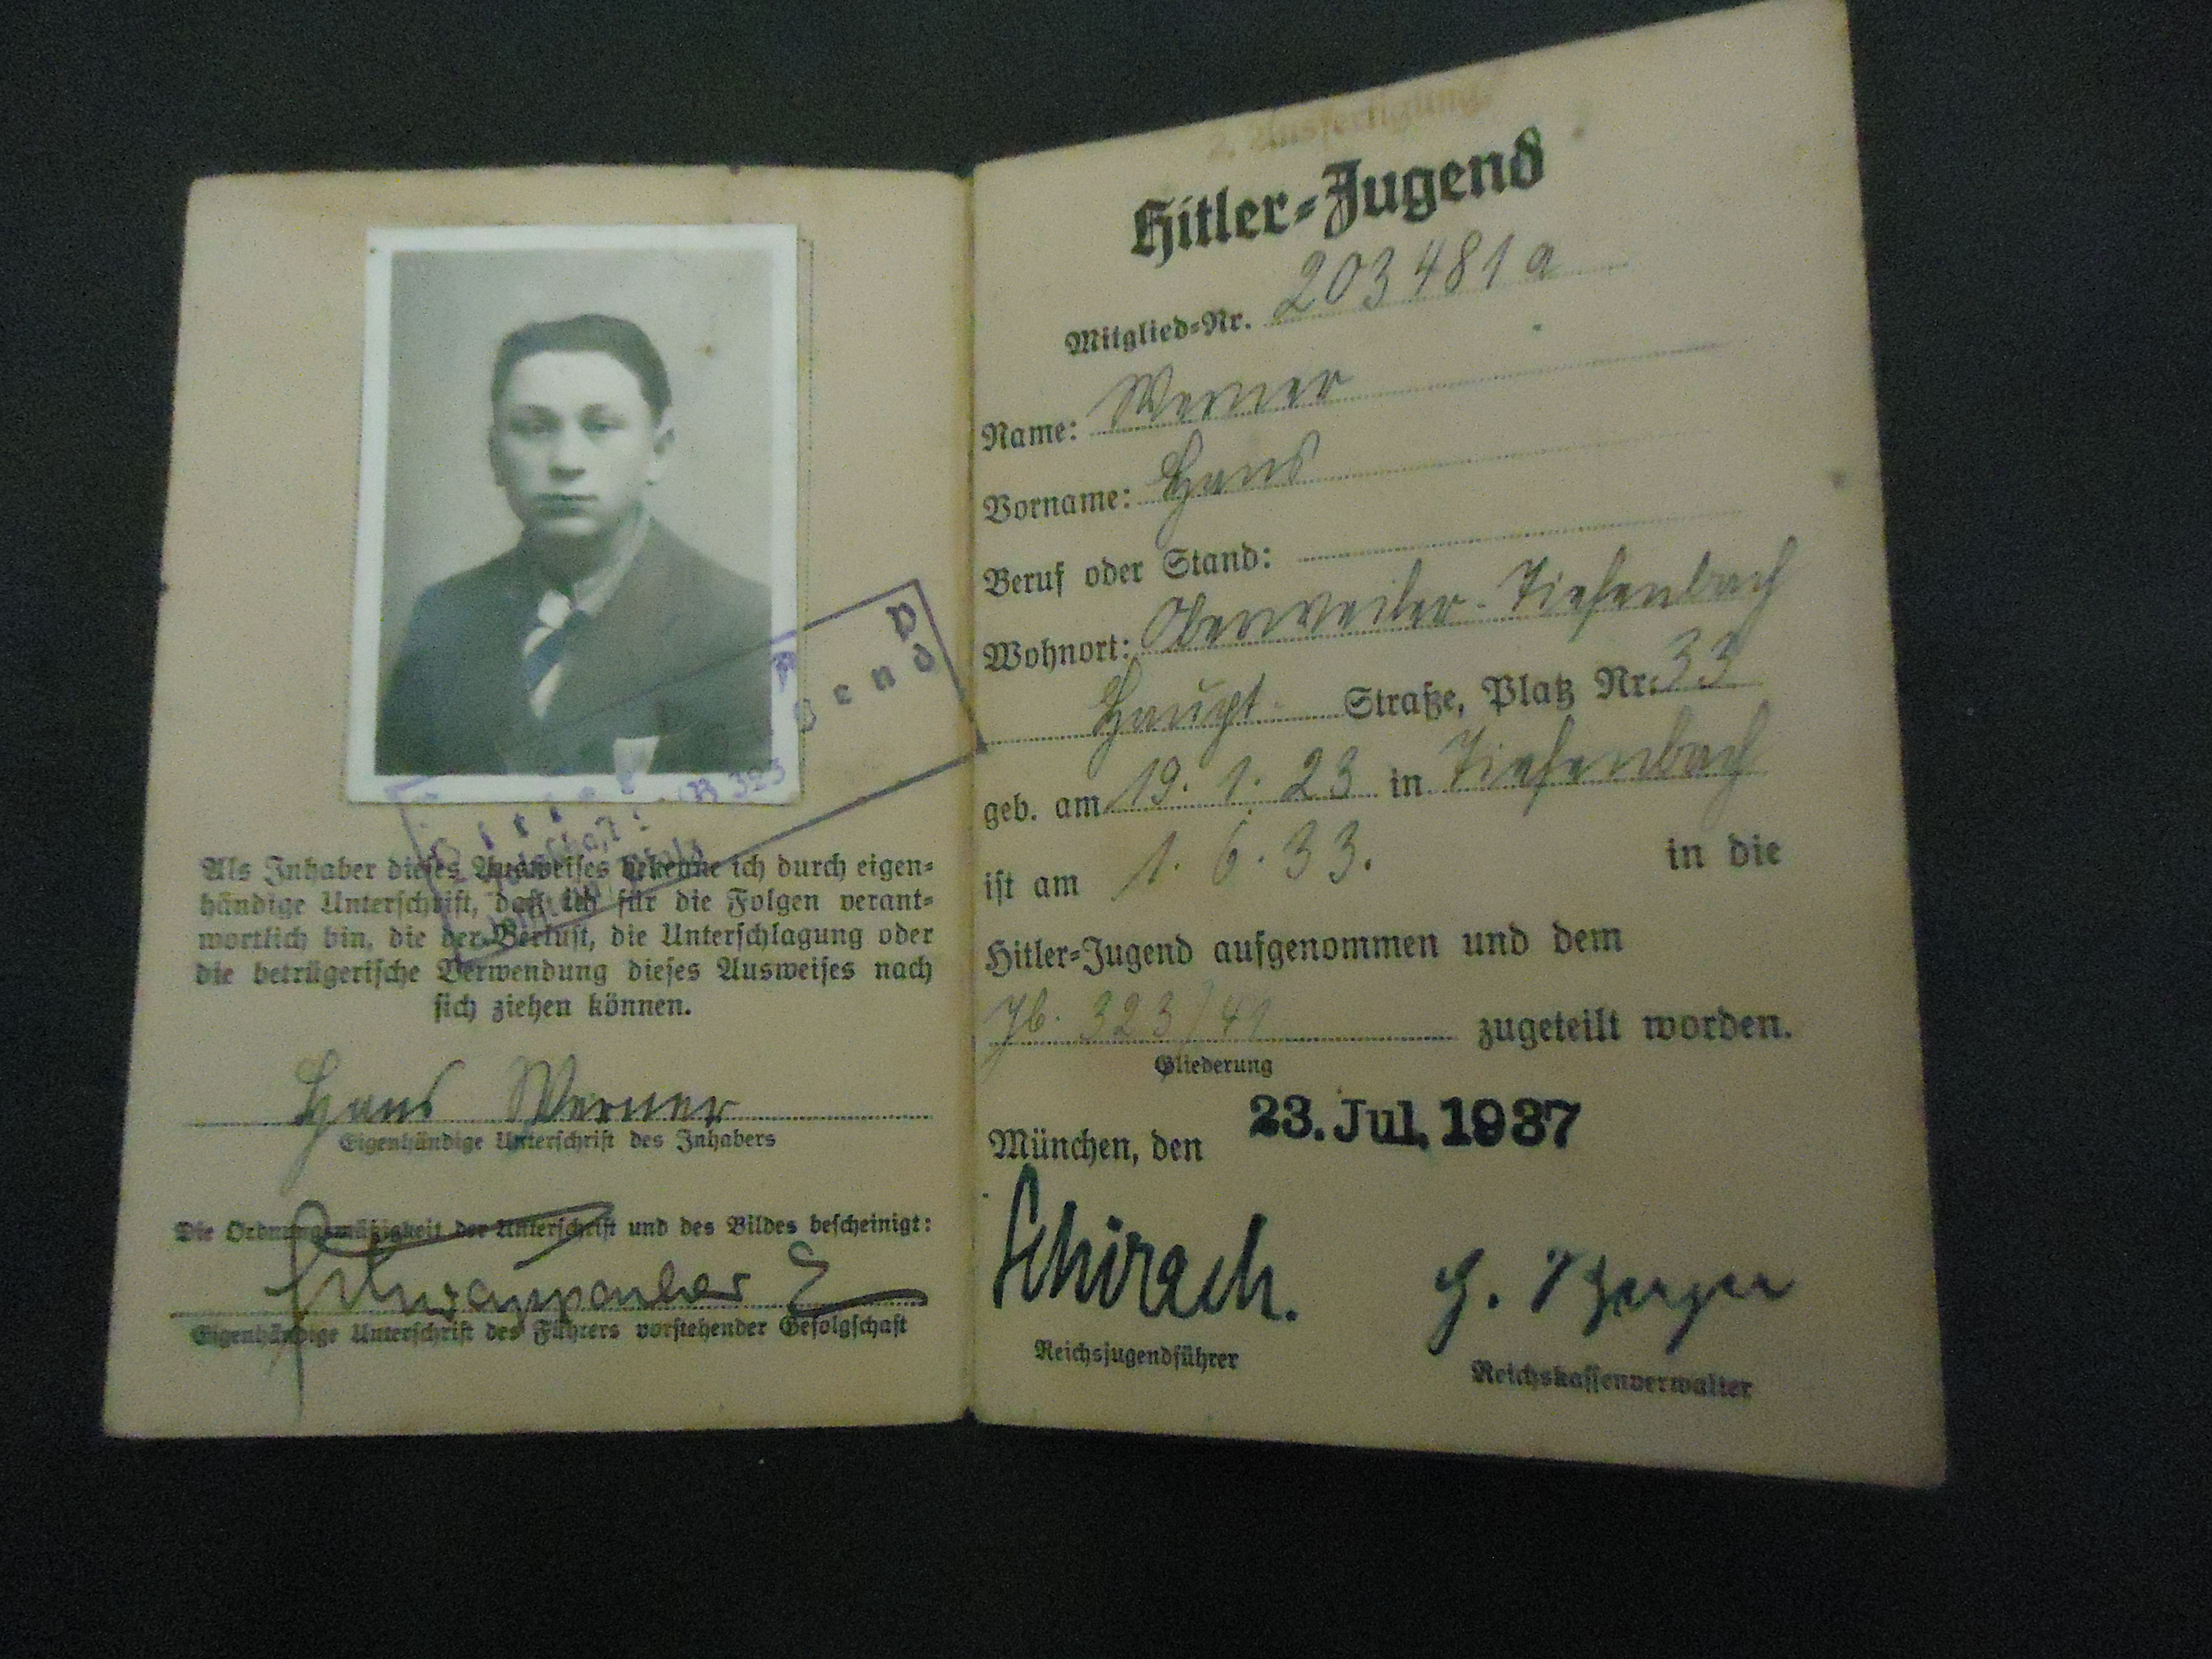 Als Inhaber dieses Ausweises bekenne ich durch eigen-
händige Unterschrift, daß ich für die Folgen verant-
wortlich bin, die der Verlust, die Unterschlagung oder
die betrügerische Verwendung dieses Ausweises nach
sich ziehen können.
Hans Werner
Eigenhändige Unterschrift des Inhabers
Die Ordnungsmäßigkeit der Unterschrift und des Bildes bescheinigt:
Eigenhändige Unterschrift des Führers vorstehender Gefolgschaft
2. Ausfertigung
Hitler-Jugend
Mitglied-Nr. 203481a
Name: Werner
Vorname: Hans
Beruf oder Stand:
Wohnort: Oberweiler-Tiefenbach
Haupt- Straße, Platz Nr. 33
geb. am 19. 1. 23 in Tiefenbach
ist am 1. 6. 33. in die
Hitler-Jugend aufgenommen und dem
323/41 zugeteilt worden.
Gliederung
München, den 23. Jul. 1937
Schirach.
Reichsjugendführer
Reichskassenverwalter